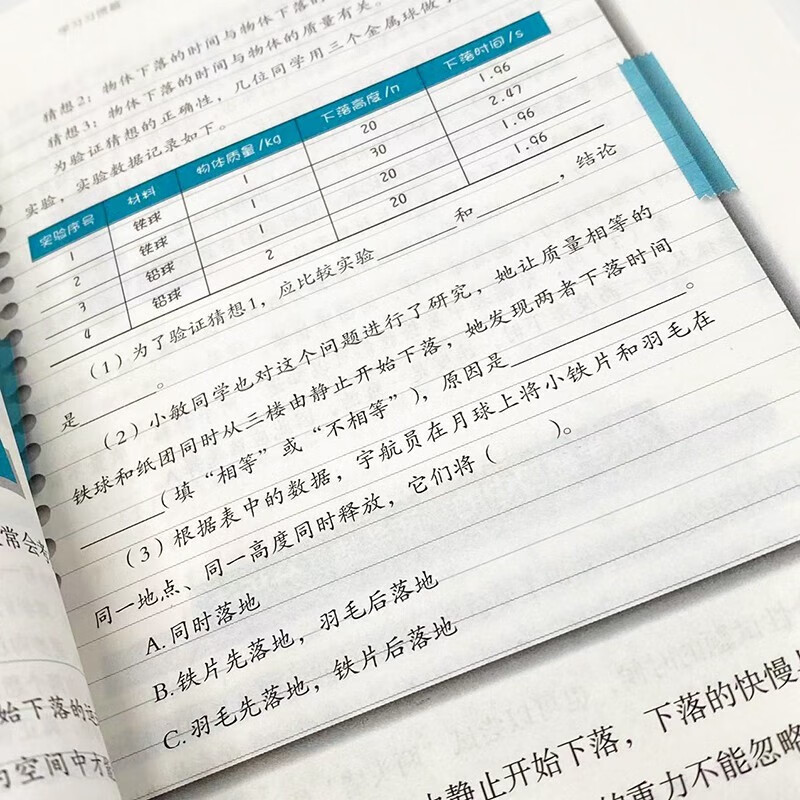 学习习惯篇
猜想2：物体下落的时间与物体下落的
猜想3：物体下落的时间与物体的质量有关。
为验证猜想的正确性，几位同学用三个金属球做
实验，实验数据记录如下。
实验序号 材料 物体质量/kg 下落高度/m 下落时间/s
1 铁球 1 20 1.96
2 铁球 1 30 2.47
3 铅球 1 20 1.96
4 铅球 2 20 1.96
（1）为了验证猜想1，应比较实验________和________，结论
是________。
（2）小敏同学也对这个问题进行了研究，她让质量相等的
铁球和纸团同时从三楼由静止开始下落，她发现两者下落时间
________（填“相等”或“不相等”），原因是________________。
（3）根据表中的数据，宇航员在月球上将小铁片和羽毛在
同一地点、同一高度同时释放，它们将（ ）。
A.同时落地
B.铁片先落地，羽毛后落地
C.羽毛先落地，铁片后落地
常会
始下落的运
空间中才能
由静止开始下落，下落的快慢
的重力不能忽略